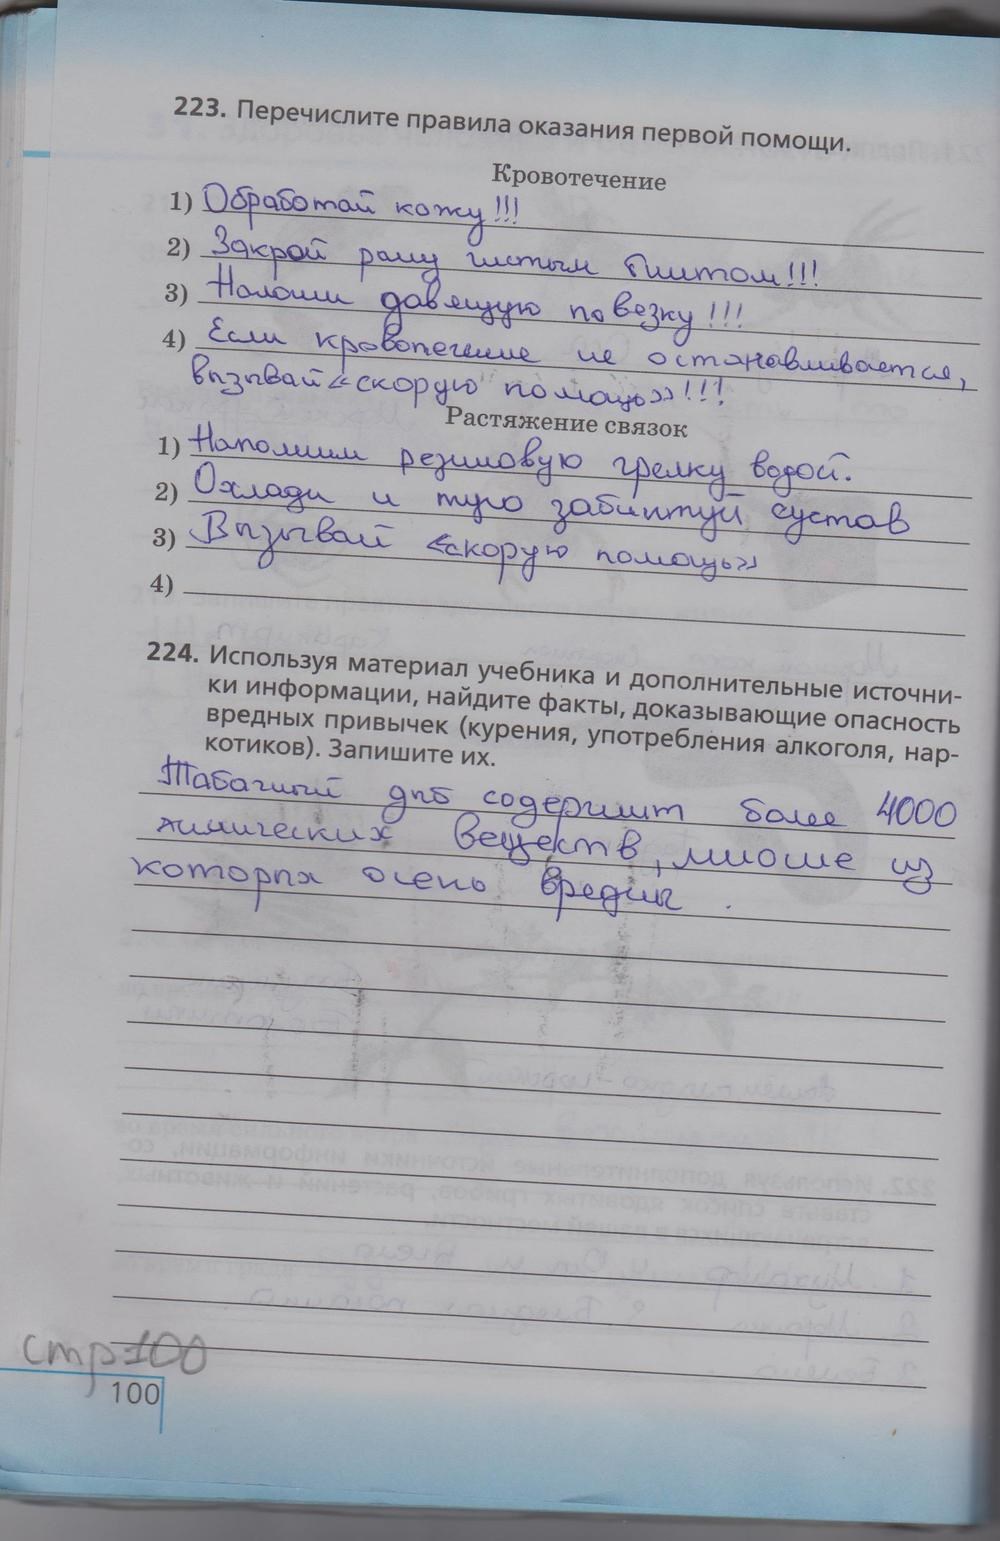 223. Перечислите правила оказания первой помощи.
Кровотечение
1) Обработай кожу!!!
2) Закрой рану чистым бинтом!!!
3) Наложи давящую повезку!!!
4) Если кровотечение не останавливается,
вызывай «скорую помощь»!!!
Растяжение связок
1) Наполним резиновую грелку водой.
2) Охлади и туго забинтуй сустав
3) Вызывай «скорую помощь»
4)
224. Используя материал учебника и дополнительные источни-
ки информации, найдите факты, доказывающие опасность
вредных привычек (курения, употребления алкоголя, нар-
котиков). Запишите их.
Табачный дыб содержит более 4000
химических веществ, многие из
которых очень вредны.
стр100
100